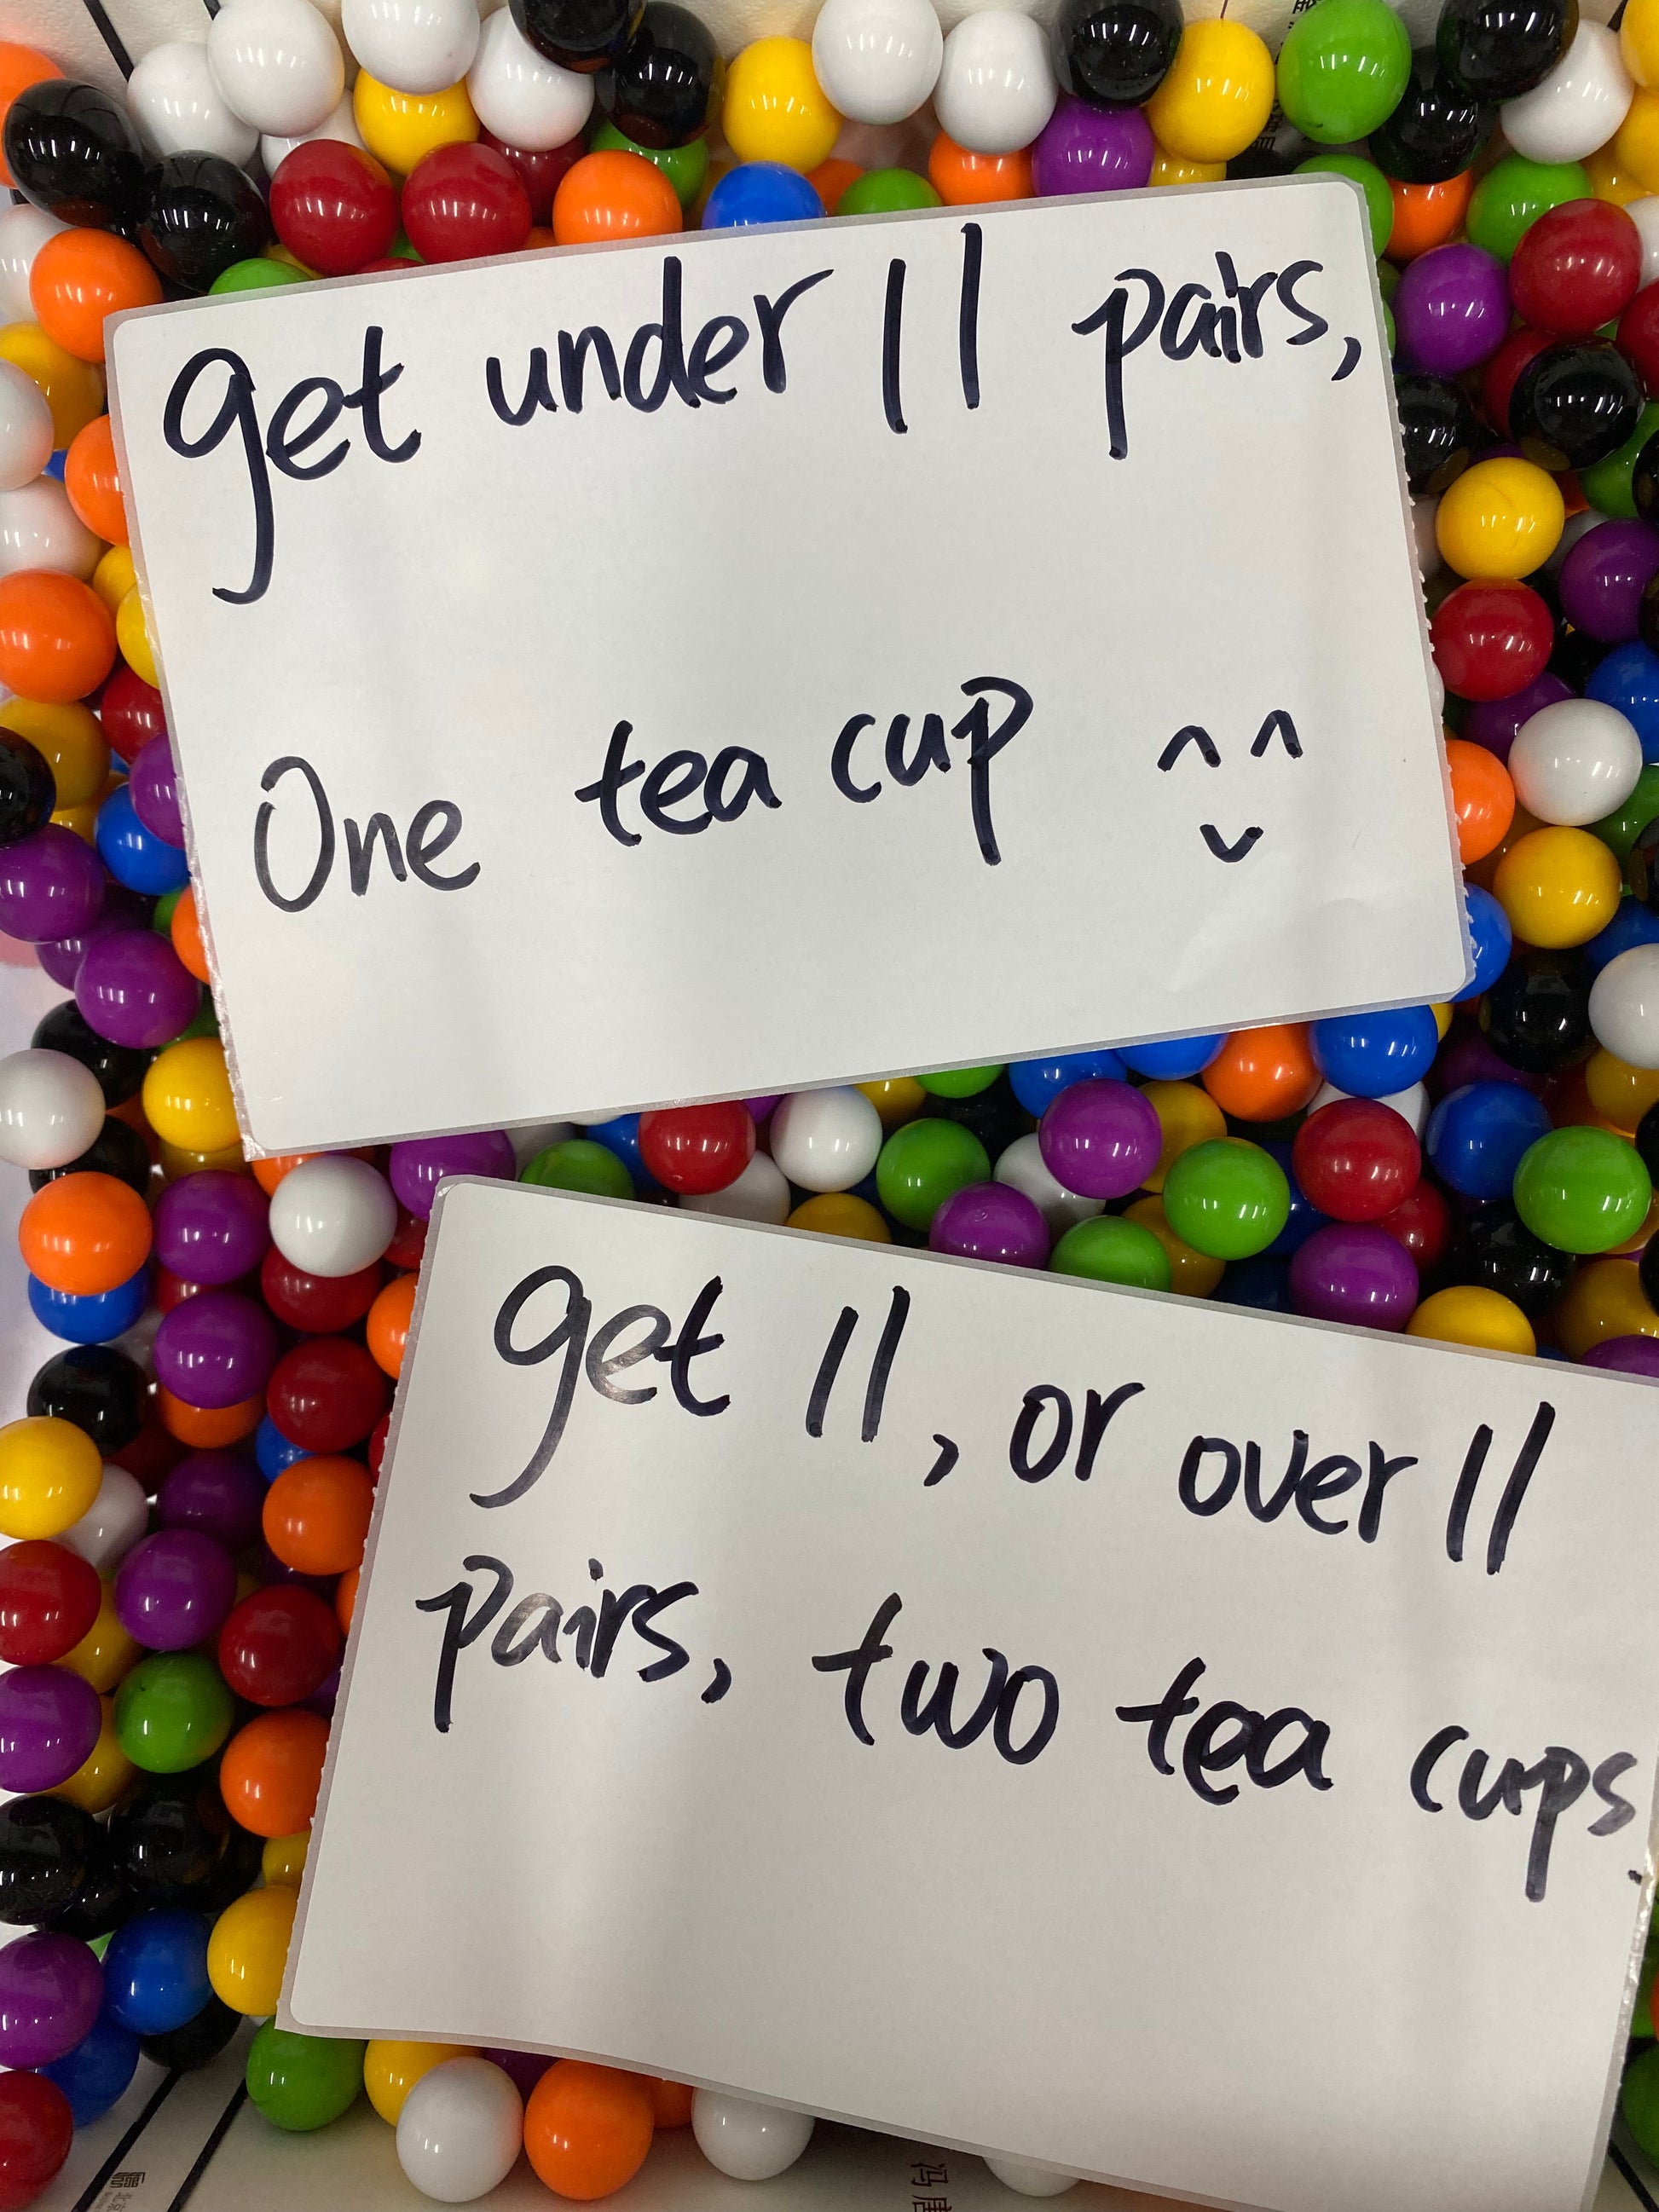 get under 11 pairs,
One tea cup ^ ^
get 11, or over 11
pairs, two tea cups.